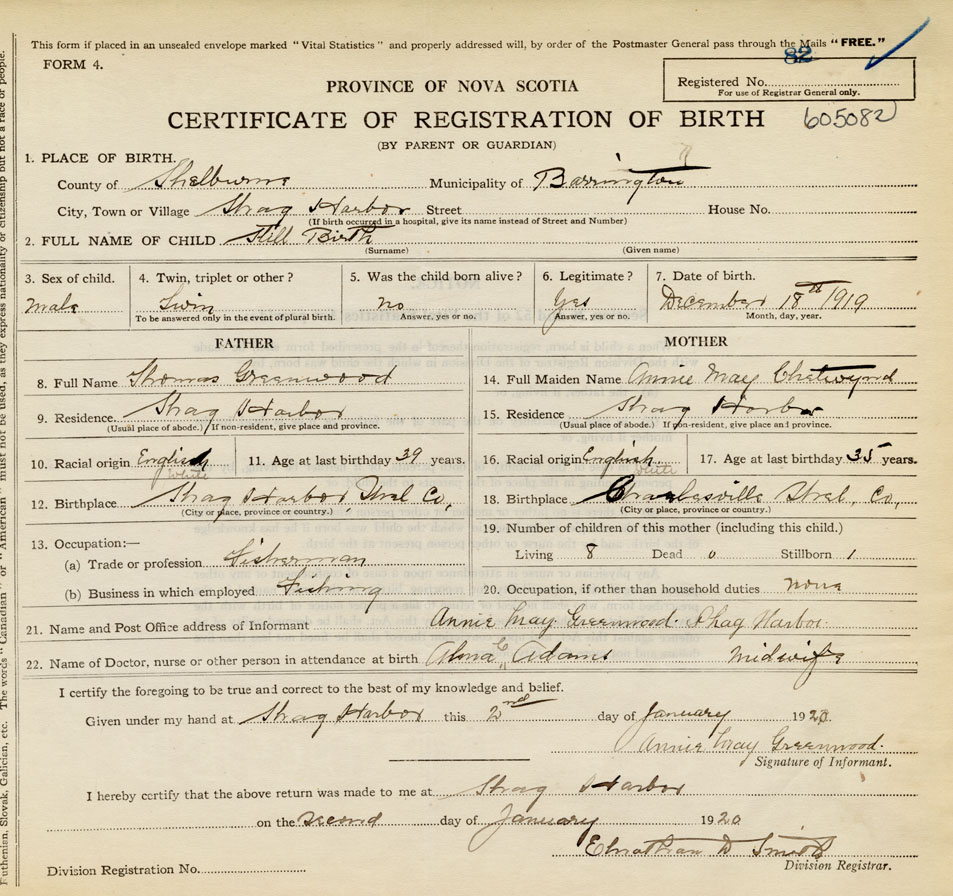 This form if placed in an unsealed envelope marked "Vital Statistics" and properly addressed will, by order of the Postmaster General pass through the Mails "FREE."
FORM 4.
82
Registered No.
For use of Registrar General only.
PROVINCE OF NOVA SCOTIA
CERTIFICATE OF REGISTRATION OF BIRTH
605082
(BY PARENT OR GUARDIAN)
1. PLACE OF BIRTH.
County of Shelburne Municipality of Barrington
City, Town or Village Shag Harbor Street House No.
(If birth occurred in a hospital, give its name instead of Street and Number)
2. FULL NAME OF CHILD Still Birth
(Surname) (Given name)
3. Sex of child. 4. Twin, triplet or other? 5. Was the child born alive? 6. Legitimate? 7. Date of birth.
Male Twin no Yes December 18th 1919
To be answered only in the event of plural birth. Answer, yes or no. Answer, yes or no. Month, day, year.
FATHER MOTHER
8. Full Name Thomas Greenwood 14. Full Maiden Name Annie May Chetwynd
9. Residence. Shag Harbor 15. Residence Shag Harbor
(Usual place of abode.) If non-resident, give place and province. (Usual place of abode.) If non-resident, give place and province.
10. Racial origin English 11. Age at last birthday 39 years. 16. Racial origin English 17. Age at last birthday 35 years.
White White
12. Birthplace Shag Harbor Shel Co, 18. Birthplace Charlesville Shel, Co,
(City or place, province or country.) (City or place, province or country.)
13. Occupation:— 19. Number of children of this mother (including this child.)
(a) Trade or profession Fisherman Living 8 Dead 0 Stillborn 1
(b) Business in which employed Fishing 20. Occupation, if other than household duties none
21. Name and Post Office address of Informant Annie May Greenwood. Shag Harbor.
22. Name of Doctor, nurse or other person in attendance at birth Alma C Adams Midwife
I certify the foregoing to be true and correct to the best of my knowledge and belief.
Given under my hand at Shag Harbor this 2nd day of January 1920.
Annie May Greenwood.
Signature of Informant.
I hereby certify that the above return was made to me at Shag Harbor
on the second day of January 1920
Elnathan D Smith
Division Registrar.
Division Registration No.
Ruthenian, Slovak, Galician, etc. The words "Canadian" or "American" must not be used, as they express nationality or citizenship but not a race or people.